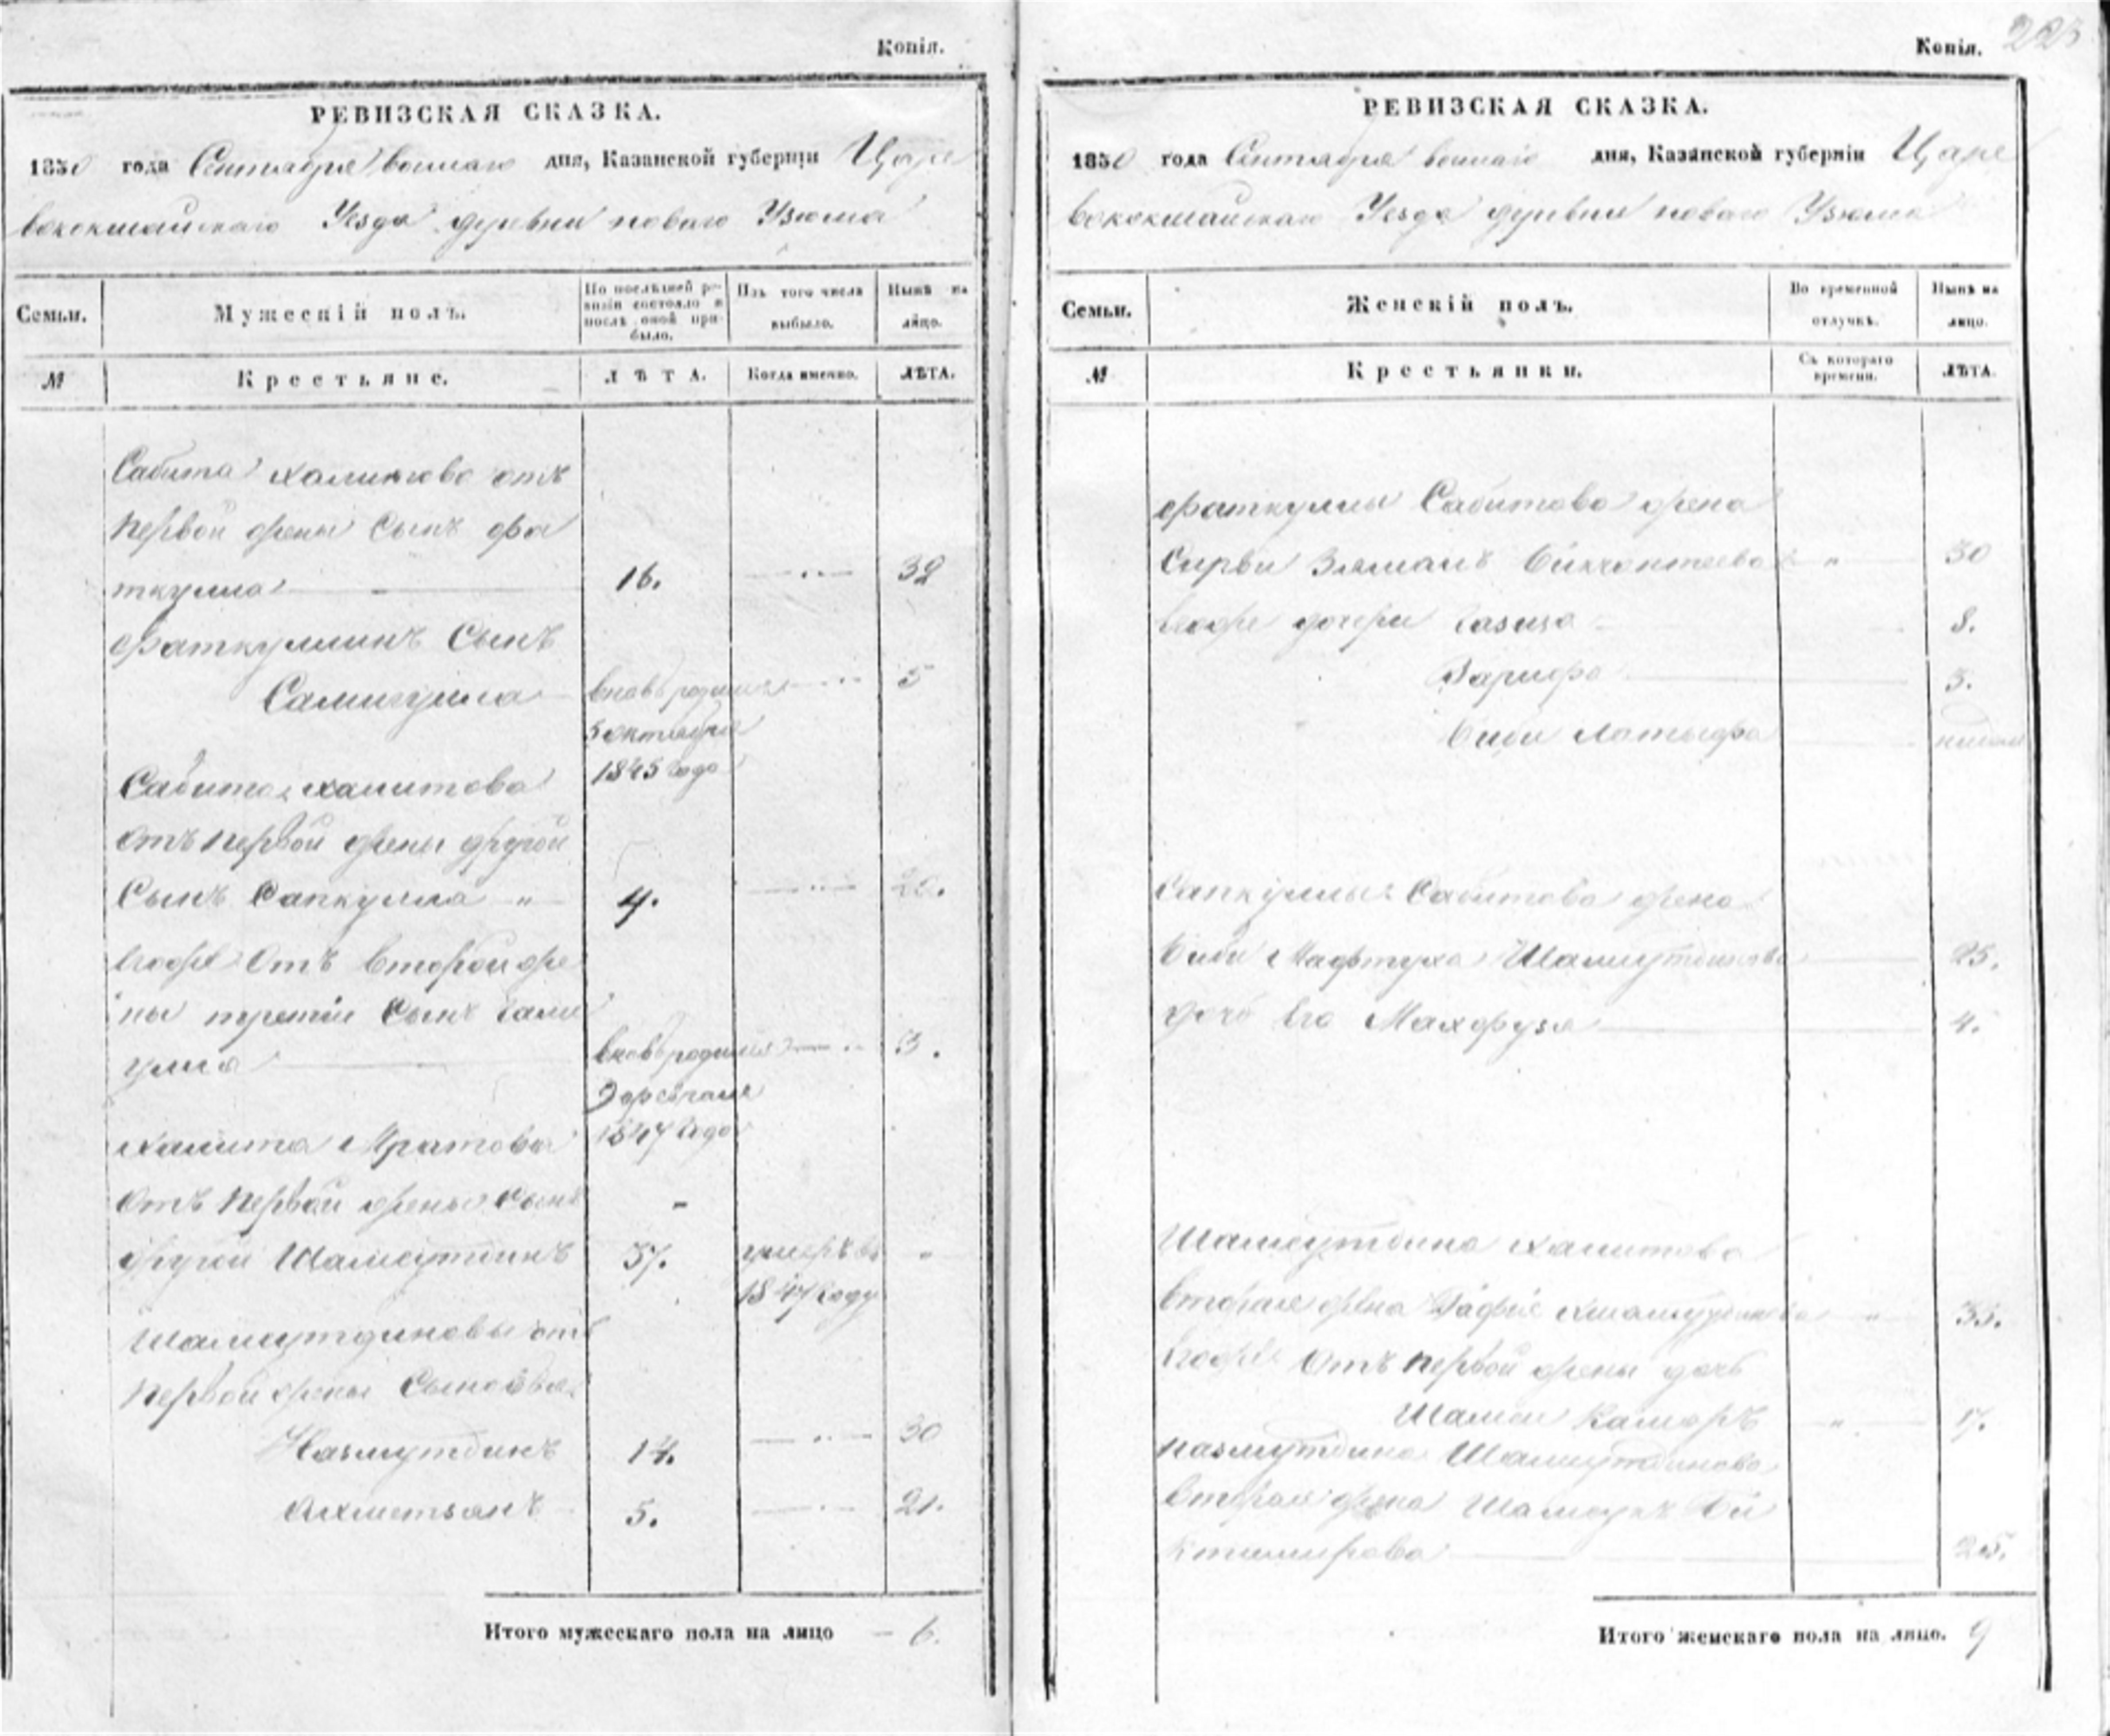 Копія.
РЕВИЗСКАЯ СКАЗКА.
1850 года Сентября дня, Казанской губерніи Царе
вококшайскаго Уезда деревни новаго Узюма
Семьи.
Мужескій полъ.
По послѣдней ре-
визіи состояло и
послѣ оной при-
было.
Изъ того числа
выбыло.
Нынѣ на
лицо.
№
Крестьяне.
ЛѢТА.
Когда именно.
ЛѢТА.
Сабита Халитова отъ
первой жены Сынъ Фа
ткулла 16. 32
Фаткуллинъ Сынъ
Самигулла вновь родился 5
5 октября
1845 года
Сабита Халитова
отъ первой жены другой
Сынъ Сапкулла 4. 20.
Егоже отъ второй же
ны третій Сынъ
улла вновь родился 3.
9 февраля
1847 года
Халита Мратова
отъ первой жены Сынъ
другой Шамсутдинъ 37. умеръ въ
1847 году
Шамсутдиновы отъ
первой жены Сыновья
Назмутдинъ 14. 30
Ахметзянъ 5. 21.
Итого мужескаго пола на лицо 6.
Копія. 223
РЕВИЗСКАЯ СКАЗКА.
1850 года Сентября дня, Казанской губерніи Царе
вококшайскаго Уезда деревни новаго Узюма
Семьи.
Женскій полъ.
Во временной
отлучкѣ.
Нынѣ на
лицо.
№
Крестьянки.
Съ котораго
времени.
ЛѢТА.
Фаткуллы Сабитова жена
Сирви Зямалъ 30
Егоже дочери Газиза 8.
Зарифа 3.
Биби Латыфа
Сапкуллы Сабитова жена
Биби Мафтуха Шамсутдинова 25.
дочь Его Махфузя 4.
Шамсутдина Халитова
вторая жена 35.
Егоже отъ первой жены дочь
Шамси Камаръ 17.
Назмутдина Шамсутдинова
вторая жена Би
ктимирова 25.
Итого женскаго пола на лицо. 9